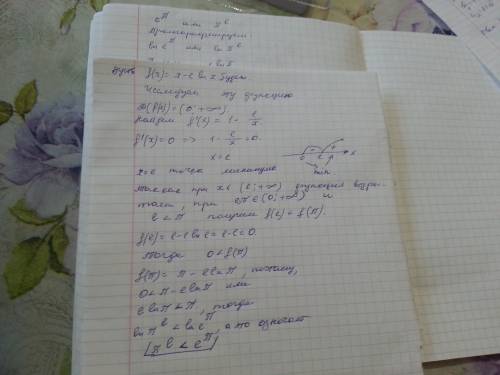 e^π или π^e
Прологарифмируем:
ln e^π или ln π^e
f(x) = x - e ln x
Исследуем эту функцию
D(f(x)) = (0; +∞)
Найдем f'(x) = 1 - e/x
f'(x) = 0 => 1 - e/x = 0.
x = e
0 e x
min
x = e точка минимума
Так как при x ∈ (e; +∞) функция возрастает, при и
e < π получим f(e) < f(π).
f(e) = e - e ln e = e - e = 0.
Тогда 0 < f(π)
f(π) = π - e ln π, поэтому,
0 < π - e ln π или
e ln π < π, тогда
ln π^e < ln e^π, а это означает
π^e < e^π